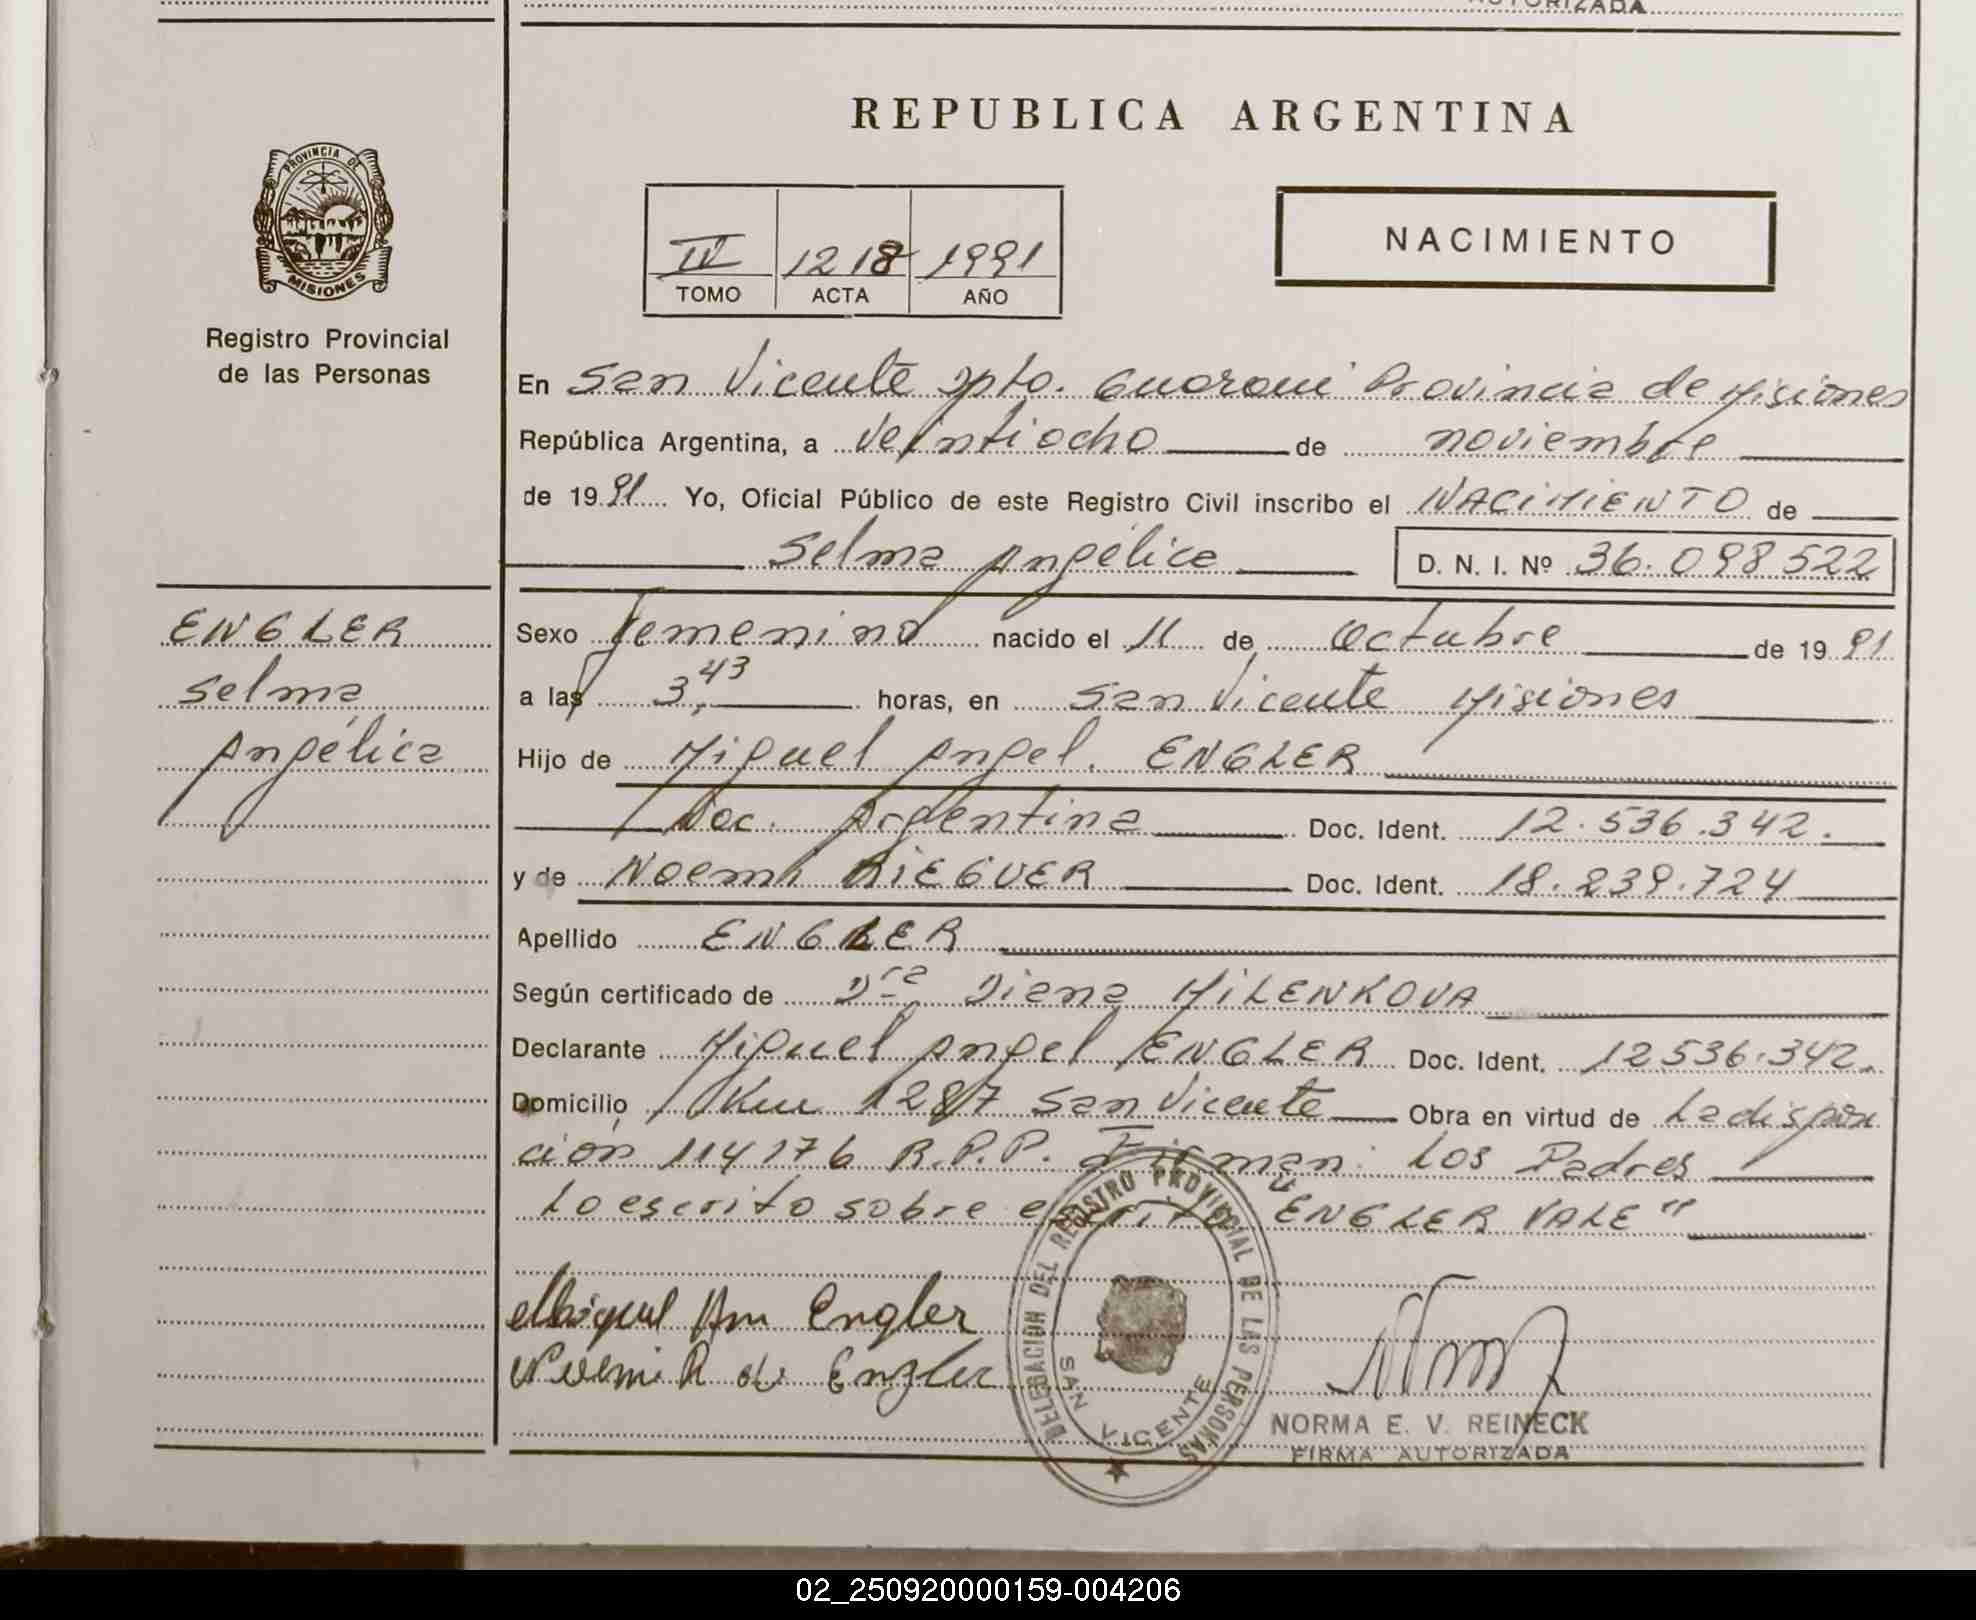 AUTORIZADA
REPUBLICA ARGENTINA
PROVINCIA DE
MISIONES
Registro Provincial
de las Personas
IV 1218 1991
TOMO ACTA AÑO
NACIMIENTO
En San Vicente Dpto. Guaraní Provincia de Misiones
República Argentina, a veintiocho de noviembre
de 1991 Yo, Oficial Público de este Registro Civil inscribo el NACIMIENTO de
Selma Angélica D. N. I. Nº 36.098522
ENGLER
Selma
Angélica
Sexo Femenino nacido el 11 de Octubre de 1991
a las 3,43 horas, en San Vicente Misiones
Hijo de Miguel Angel. ENGLER
Nac. Argentina Doc. Ident. 12.536.342.
y de Noemi RIEGUER Doc. Ident. 18.239.724
Apellido ENGLER
Según certificado de Dra Diana MILENKOVA
Declarante Miguel Angel ENGLER Doc. Ident. 12536.342.
Domicilio Km 1287 San Vicente Obra en virtud de La disposi
ción 114176 R.P.P. Firman: Los Padres
Lo escrito sobre escrito "ENGLER VALE"
Miguel An Engler
Noemi R de Engler
DELEGACION DEL REGISTRO PROVINCIAL DE LAS PERSONAS
SAN VICENTE
NORMA E. V. REINECK
FIRMA AUTORIZADA
02_250920000159-004206